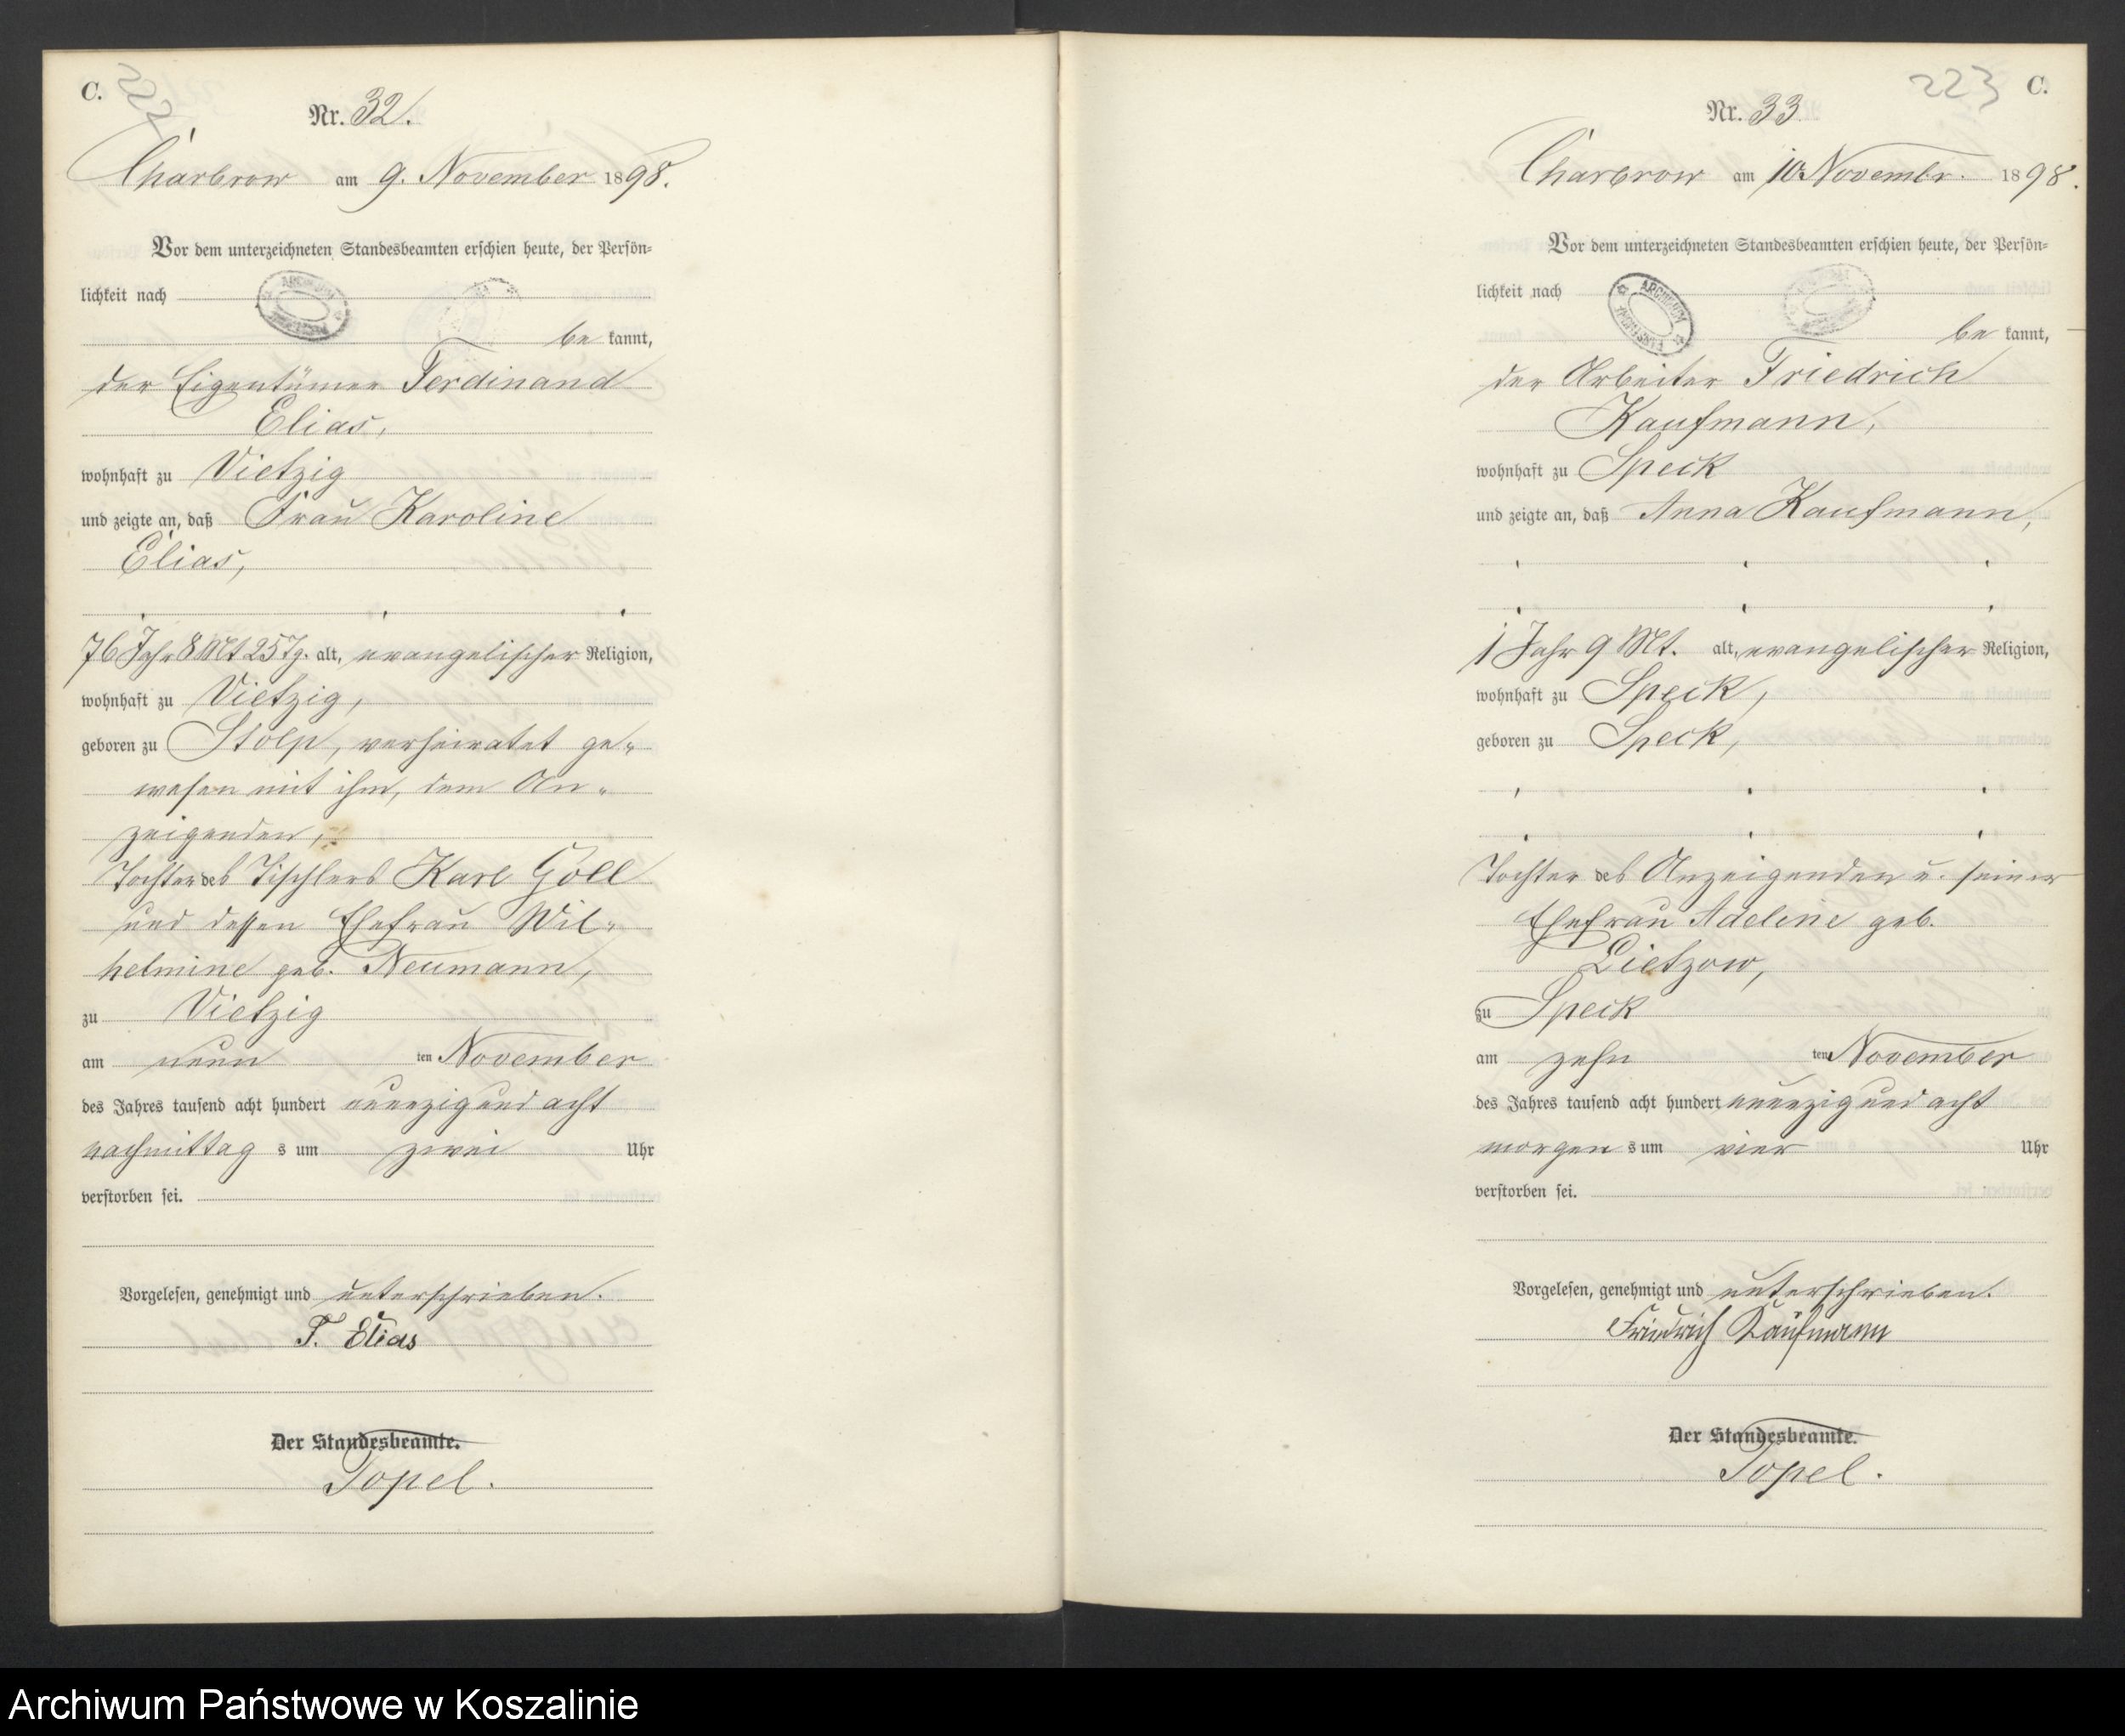 C.
222
Nr. 32.
Charbrow am 9. November 1898.
Vor dem unterzeichneten Standesbeamten erschien heute, der Persön-
lichkeit nach
be kannt,
der Eigentümer Ferdinand
Elias,
wohnhaft zu Vietzig
und zeigte an, daß Frau Karoline
Elias,
76 Jahr 8 Mt 25 Tg. alt, evangelischer Religion,
wohnhaft zu Vietzig,
geboren zu Stolp, verheiratet ge-
wesen mit ihm, dem An-
zeigenden,
Tochter des Tischlers Karl Göll
und dessen Ehefrau Wil-
helmine geb. Neumann,
zu Vietzig
am neun ten November
des Jahres tausend acht hundert neunzig und acht
nachmittag s um zwei Uhr
verstorben sei.
Vorgelesen, genehmigt und unterschrieben.
F. Elias
Der Standesbeamte.
Topel.
223
C.
Nr. 33.
Charbrow am 10. Novembr. 1898.
Vor dem unterzeichneten Standesbeamten erschien heute, der Persön-
lichkeit nach
ARCHIWUM
be kannt,
der Arbeiter Friedrich
Kaufmann,
wohnhaft zu Speck
und zeigte an, daß Anna Kaufmann,
1 Jahr 9 Mt. alt, evangelischer Religion,
wohnhaft zu Speck,
geboren zu Speck,
Tochter des Anzeigenden u. seiner
Ehefrau Adeline geb.
Lietzow,
zu Speck
am zehn ten November
des Jahres tausend acht hundert neunzig und acht
morgen s um vier Uhr
verstorben sei.
Vorgelesen, genehmigt und unterschrieben.
Friedrich Kaufmann
Der Standesbeamte.
Topel.
Archiwum Państwowe w Koszalinie